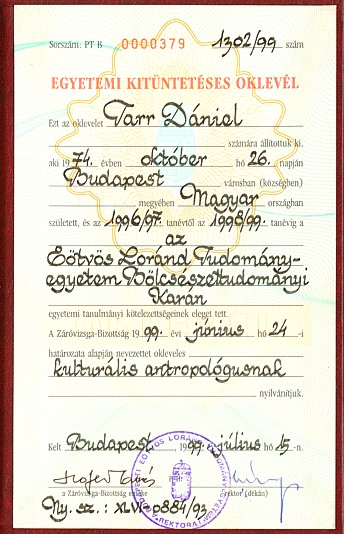 Sorszám: PT B 0000379 1302/99 szám
EGYETEMI KITÜNTETÉSES OKLEVÉL
Ezt az oklevelet Tarr Dániel
számára állítottuk ki,
aki 1974. évben október hó 26. napján
Budapest városban (községben)
megyében Magyar országban
született, és az 1996/97. tanévtől az 1998/99. tanévig a
az
Eötvös Loránd Tudomány-
egyetem Bölcsészettudományi
Karán
egyetemi tanulmányi kötelezettségeinek eleget tett.
A Záróvizsga-Bizottság 1999. évi június hó 24-i
határozata alapján nevezettet okleveles
kulturális antropológusnak
nyilvánítjuk.
Kelt Budapest 1999. július hó 15-n.
a Záróvizsga-Bizottság elnöke rektor (dékán)
Ny. sz.: XLVI. 0884/93.